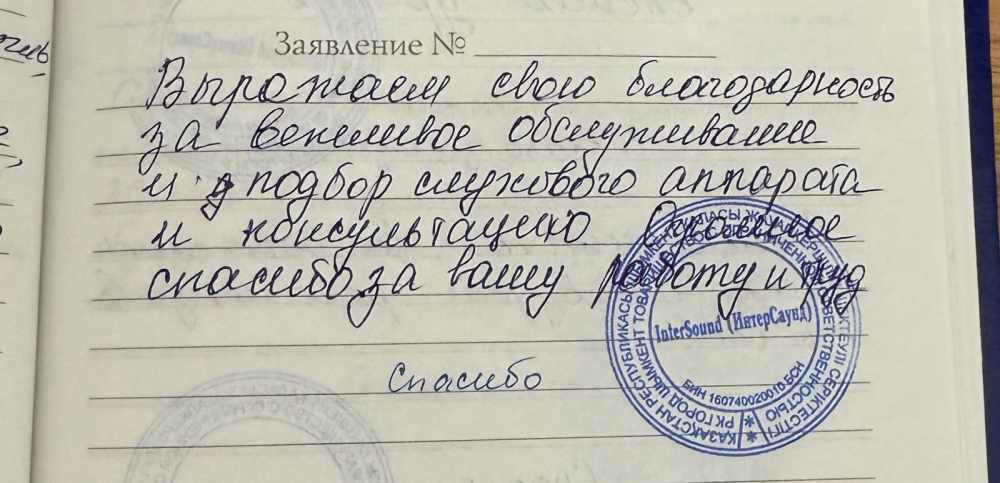 Заявление №
Выражаем свою благодарность
за вежливое обслуживание
и подбор слухового аппарата
и консультацию. Огромное
спасибо за вашу работу и труд
Спасибо
InterSound (ИнтерСаунд)
БИН 160740020010 БСН
ҚАЗАҚСТАН РЕСПУБЛИКАСЫ ШЫМКЕНТ ҚАЛАСЫ ЖАУАПКЕРШІЛІГІ ШЕКТЕУЛІ СЕРІКТЕСТІГІ
РК ГОРОД ШЫМКЕНТ ТОВАРИЩЕСТВО С ОГРАНИЧЕННОЙ ОТВЕТСТВЕННОСТЬЮ